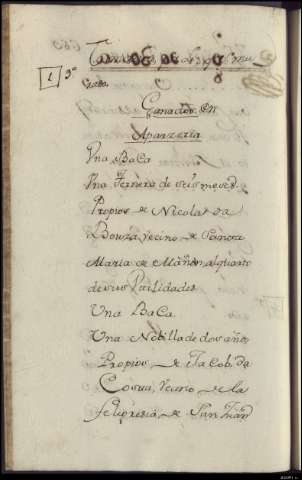 1
Ganados en
Aparzería
Vna BaCa
Vna Ternera de seis meses.
Propios de Nicolas da
Bouza, vecino de Santa
Maria de Mañon, al quarto
de sus Vtilidades
Una BaCa.
Una Nobilla de dos años
Propios de Jacob. da
Costa, Vecino de la
feligresía, de San Juan